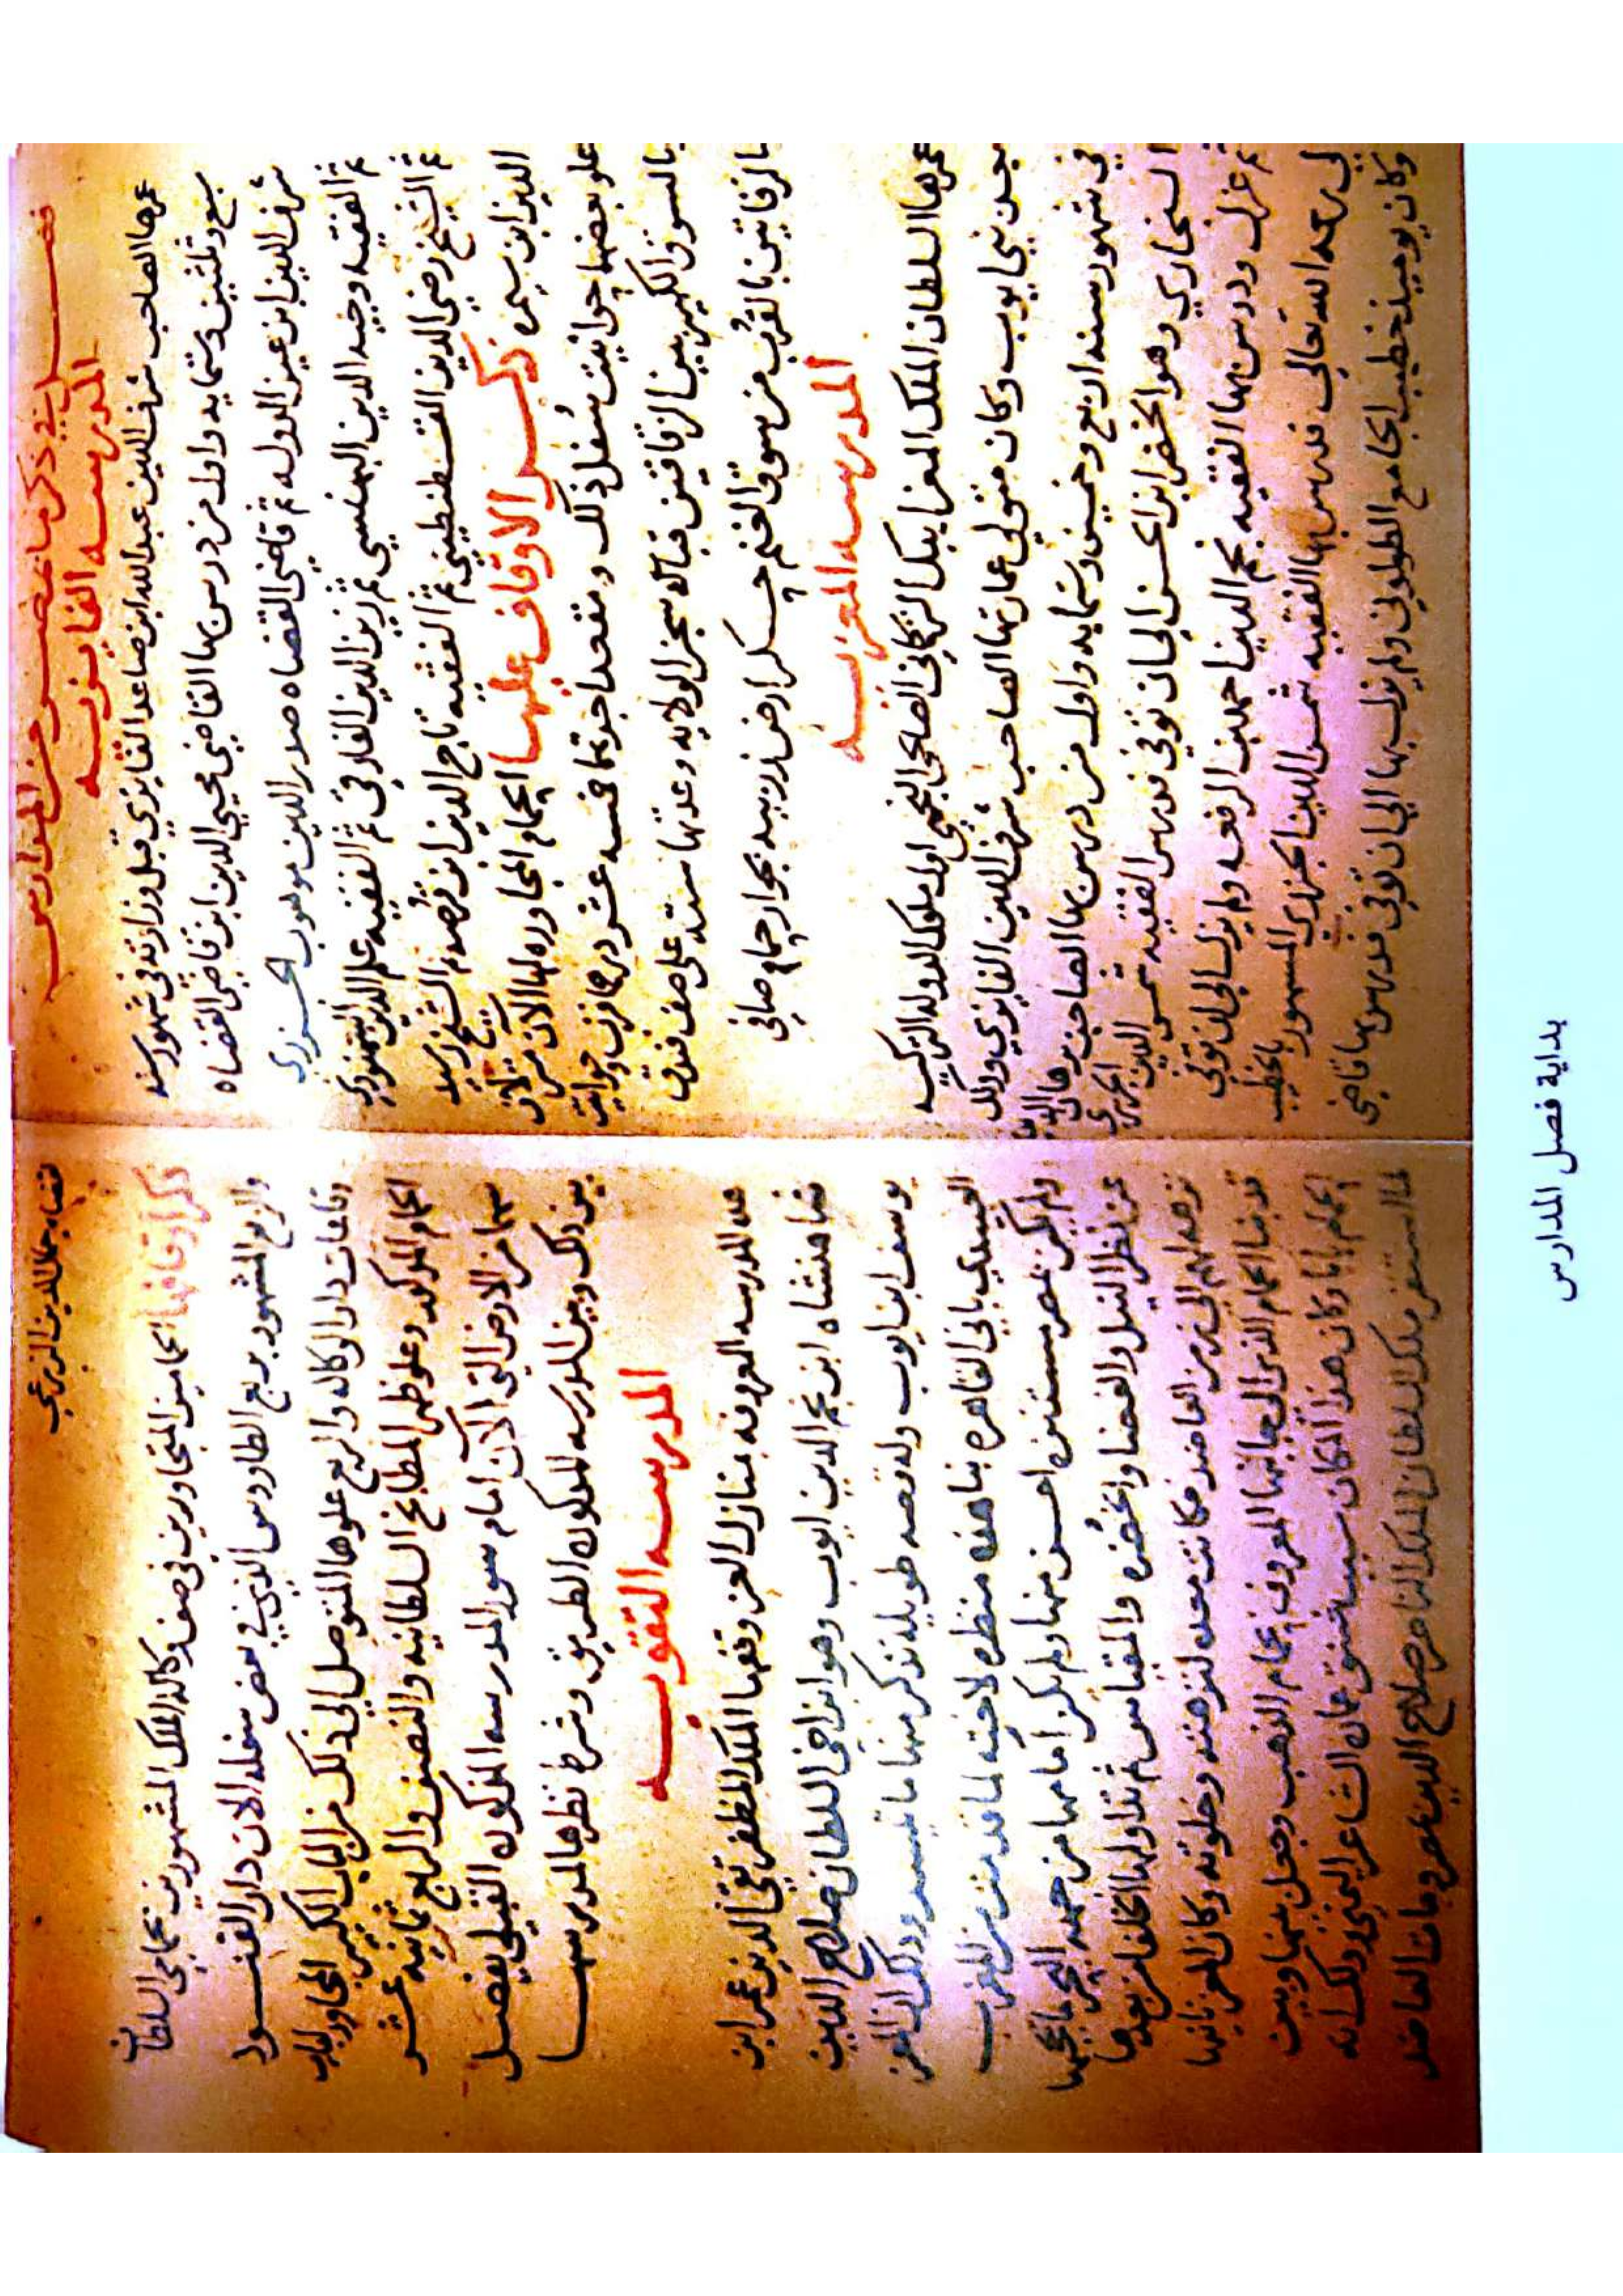 فصل في ذكر ما بمصر من المدارس
المدرسه الفايزيه
عمرها الصاحب شرف الدين عبد الله ابن صاعد الفايزي قبل وزارته في شهور سنه
سبع وثلثين وستمايه واول من درس بها القاضي محيي الدين ابن قاضي القضاه
شرف الدين ابن عين الدوله ثم قاضي القضاه صدر الدين موهوب الجزري
ثم الفقيه وجيه الدين البهنسي ثم زين الدين الفارقي ثم الفقيه علم الدين السمنودي
ثم الشيخ رضي الدين القسنطيني ثم الفقيه تاج الدين ثم الشيخ رشيد
الدين ابن ذكر الاوقاف عليها الحمام المجاوره لها الآن من
علو بعضها حوانيت سفل ذلك ومقعدا اجرتها خمسه عشر درهما حوانيت
بالسوق الكبير بين الزقاقين قباله سجن الولايه وعدتها سته على صف فندق
الزقاتين بالقرب من سوق الغنم حكر ارض بجوار حمام
المدرسه المعزيه
عمرها السلطان الملك المعز ايبك التركماني الصالحي النجمي اول ملوك الدوله التركيه
بعد بني ايوب وكان متولي عمارتها الصاحب شرف الدين الفايزي وذلك
في شهور سنه اربع وخمسين وستمايه واول من درس بها الصاحب برهان الدين
السنجاري وهو الخضر ابن الحسن الى ان توفي فدرس الفقيه شمس الدين الجزري
ثم عزل ودرس بها الفقيه نجم الدين احمد بن الرفعه ولم يزل الى ان توفي
الى رحمه الله تعالى فدرس بها الفقيه شمس الدين الجزري المشهور بالخطيب
وكان يوميذ خطيب الجامع الطولوني ولم يزل بها الى ان توفي فدرس بها قاضي
القضاه جمال الدين الزرعي
ذكر اوقافها الحمامين المتجاورين في صف وكاله الملك المشهورين بحمامي السلطان
والربع المشهور بربع الطاووس الذي في بعض سفله الان دار القنـود
وقاعات دار الوكاله والربع علوها المتوصل الى ذلك من الباب الكبير المجاور لباب
الحمام المذكوره وعلو ظهر المطابخ السلطانيه والنصف والربع ثمانيه عشر
سهما من الارض التي الآن امام سور المدرسه المذكوره القبلي يفصل
بين ذلك وبين المدرسه المذكوره الطريق وشرط نظرها لمدرسها
المدرسه التقويه
هذه المدرسه المعروفه بمنازل العز وقفها الملك المظفر تقي الدين عمر ابن
شاهنشاه ابن نجم الدين ايوب وهو ابن اخي السلطان صلاح الدين
يوسف ابن ايوب وله قصه طويله نذكر منها ما تيسر وذلك ان المعز
العبيدي باني القاهره بنا هذه منظره لابنته لما قدمت من المغرب
ولم يكن بمصر مستنزه احسن منها ولم يكن امامها من جهه البحر ما يحجبها
عن نظر النيل والفضا والخضره والمقياس ثم تداولها الخلفا من بعدها
نزهه لهم الى زمن العاضد فكانت معده لنزهته وخلوته وكان المعز بانيها
قد بنا الحمام الذي الى جانبها المعروف بحمام الذهب وجعل بينها وبين
الحمام بابا وكان هذا المكان سبب شنق عماره الشاعر اليمني وذلك انه
لما استقر ملك السلطان الملك الناصر صلاح الدين بمصر ومات العاضد
بداية فصل المدارس